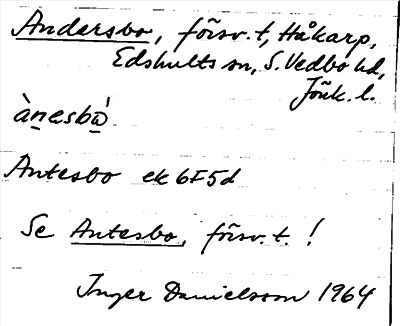 Andersbo, försv. t, Håkarp,
Edshults sn, S. Vedbo hd,
Jönk. l.
ànesbὼ
Antesbo ek 6I5d
Se Antesbo, försv. t. !
Inger Danielsson 1964